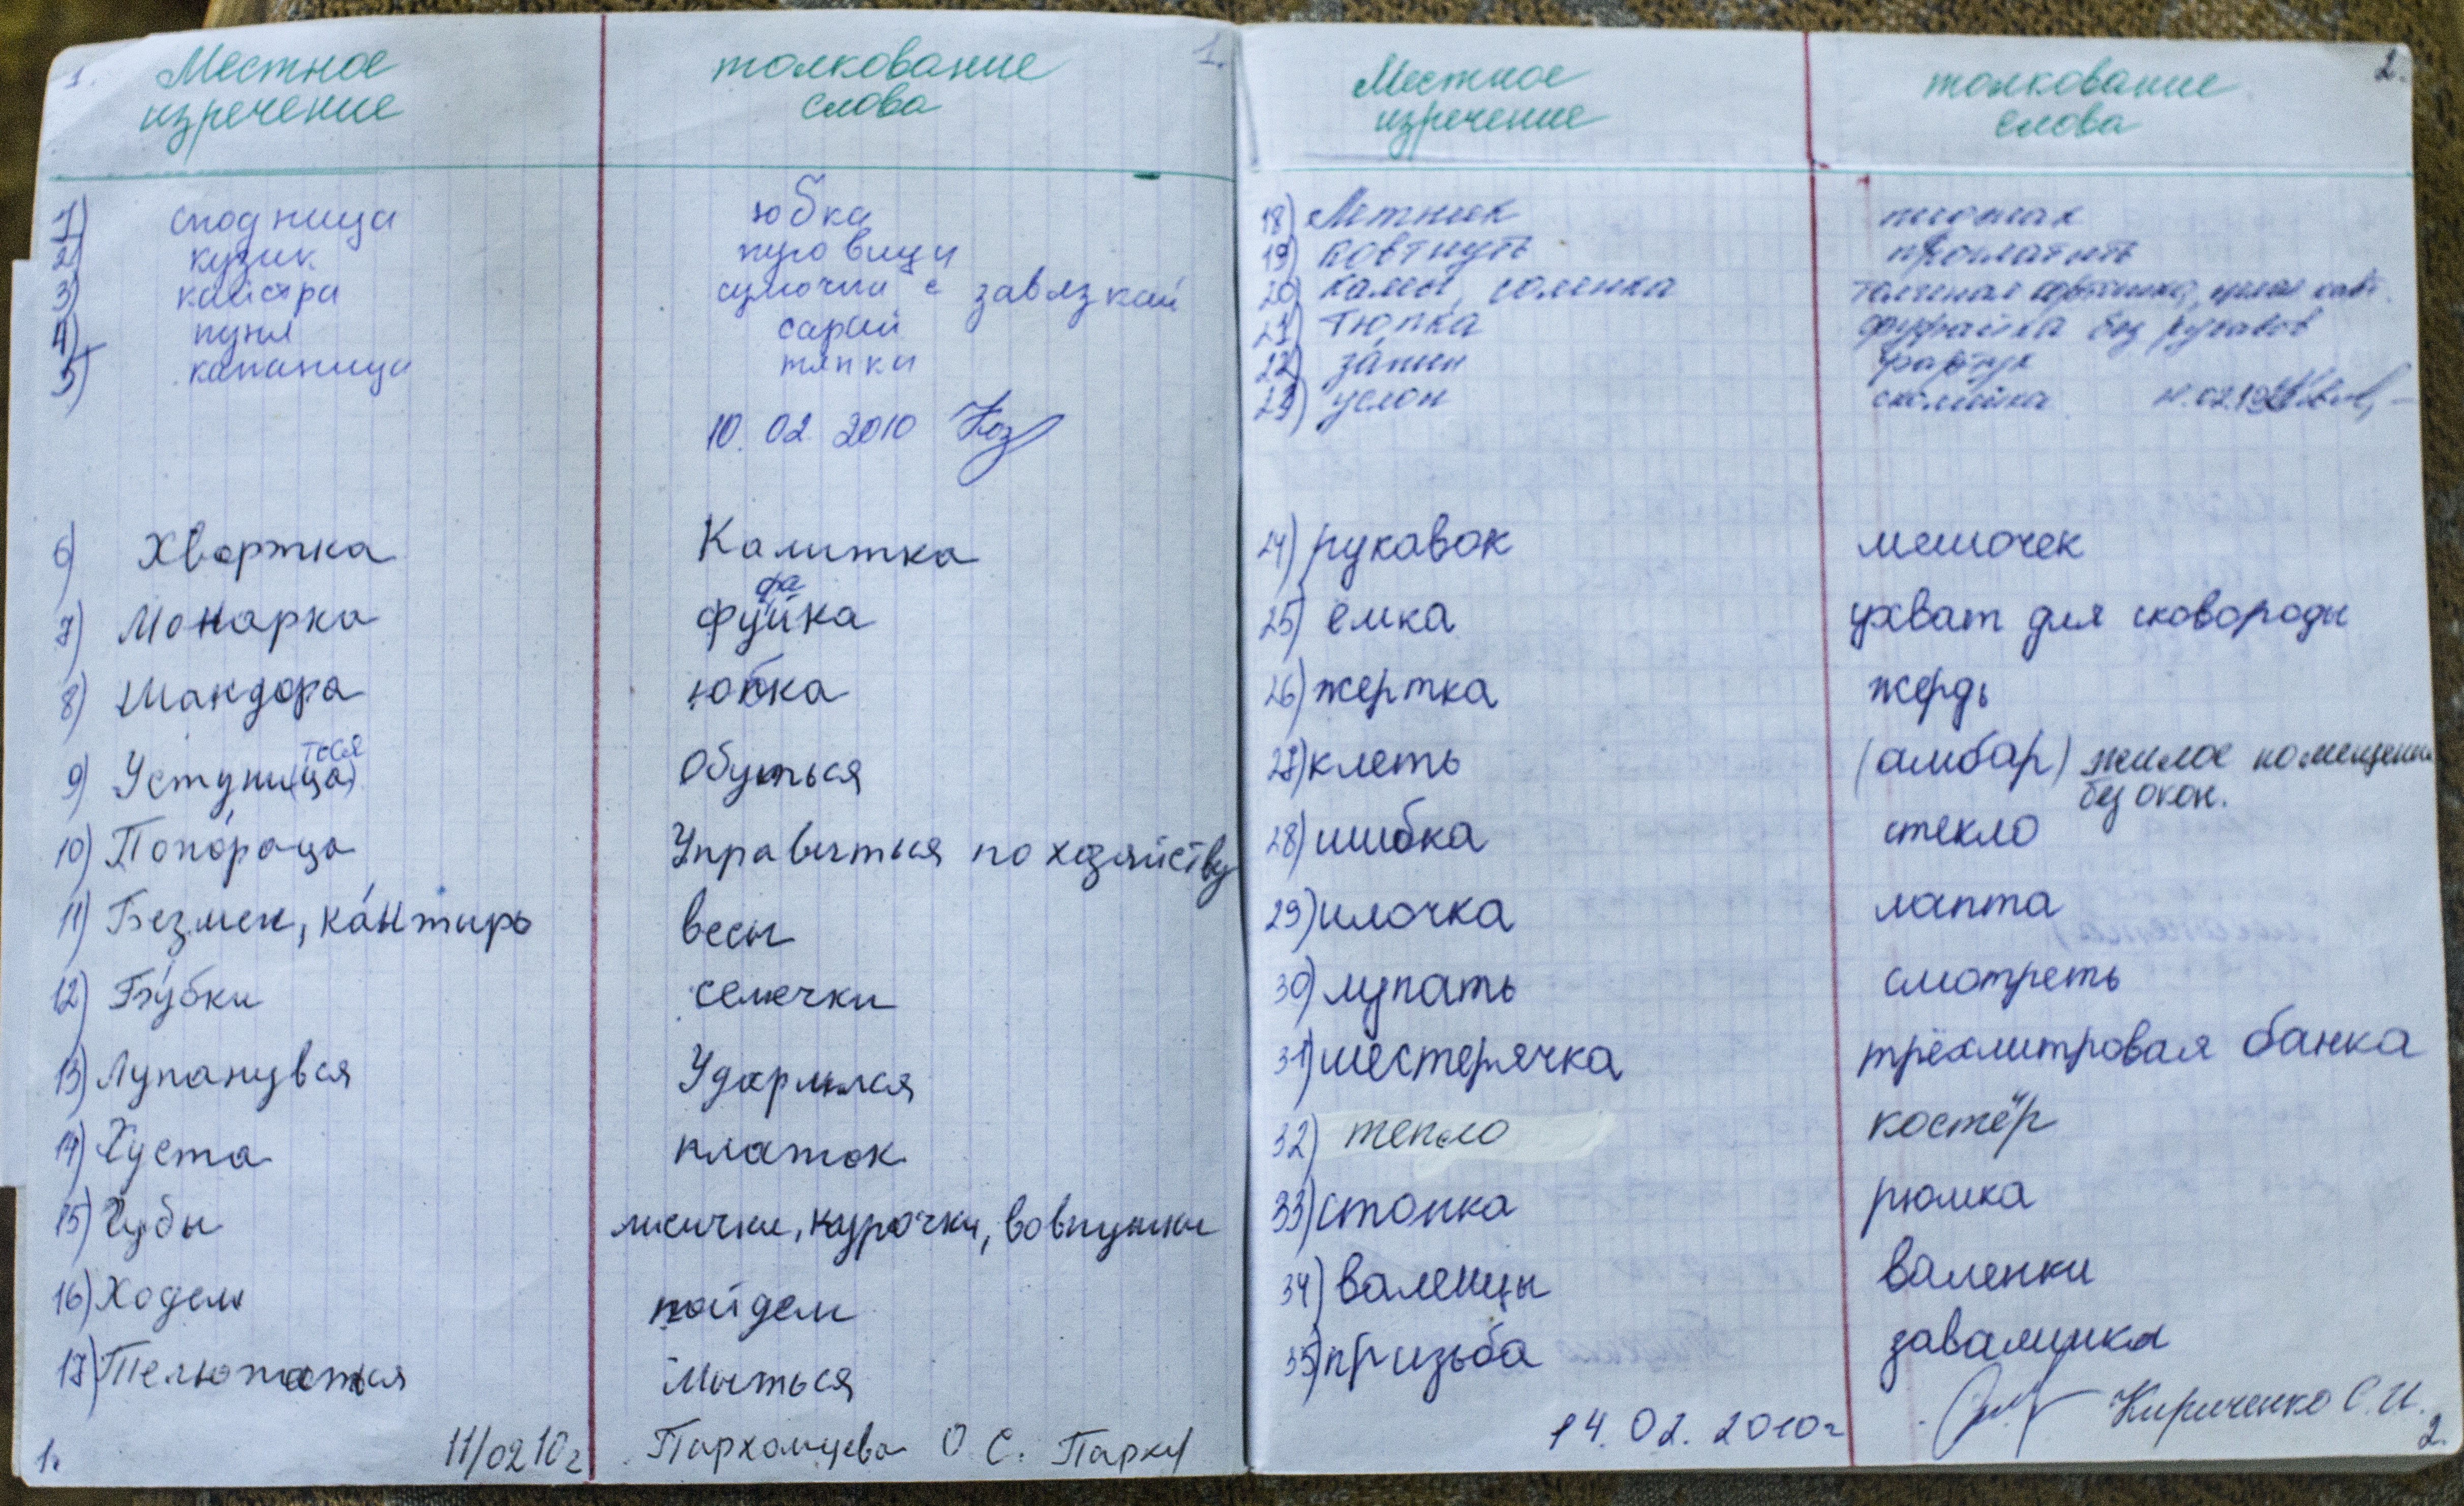 1. Местное изречение толкование слова 1.
1) сподница юбка
2) кузик пуговици
3) кайстра сумочка с завязкай
4) пуня сарай
5) капаници тяпки
10. 02 2010 Коз
6) Хвортка Калитка
фа
7) Монарка фуйка
8) Шандора юбка
ться
9) Уступи(ца) Обуться
10) Попо́раца Управиться по хозяйству
11) Безмен, ка́нтырь весы
12) Бу́бки семечки
13) Лупанувся Ударился
14) Хуста платок
15) Чубы лисички, курочки, вовнушки
16) Ходем пойдем
17) Телюпаться Мыться
1. 11/02 10г Пархомцева О С.
Местное изречение толкование слова 2.
18) Летник пиджак
19) ковтнуть проглатить
20) солонка
21) Тюпка фуфайка без рукавов
22) за́пин фартук
23) услон скамейка
24) рукавок мешочек
25) ёмка ухват для сковороды
26) жертка жердь
27) клеть (амбар) жилое помещение
без окон.
28) шибка стекло
29) илочка лапта
30) лупать смотреть
31) шестерячка трёхлитровая банка
32) тепло костёр
33) стопка рюмка
34) валенцы валенки
35) призьба завалинка
14. 02. 2010г Кириченко С. И.
2.